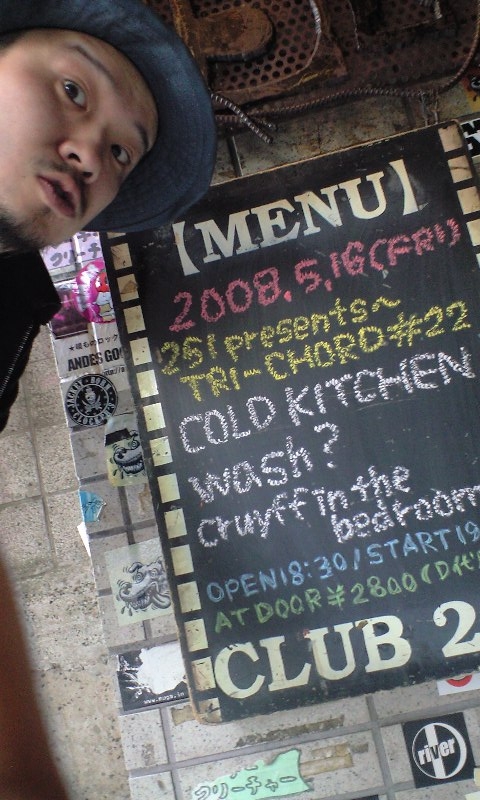 【MENU】
2008.5.16(FRI)
251 presents~
TRI-CHORD #22
COLD KITCHEN
wash?
cruyff in the
bedroom
OPEN18:30/START19
AT DOOR ¥2800(D代
CLUB 2
クリーチャー
ANDES
www.maga.in
river
クリーチャー